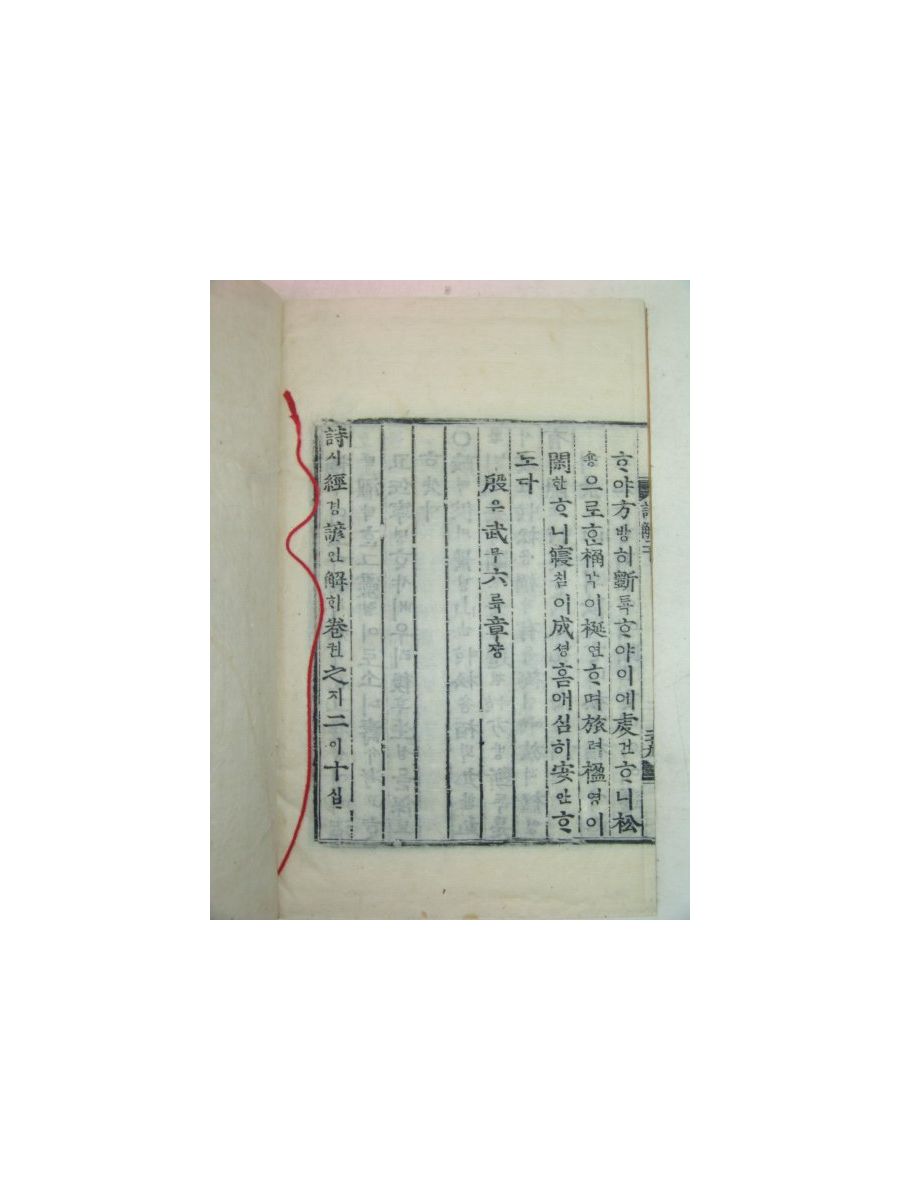 ᄒᆞ야方방히斲특ᄒᆞ야이에虔건ᄒᆞ니松
숑으로ᄒᆞᆫ桷각이梴연ᄒᆞ며旅려楹영이
閑한ᄒᆞ니寢침이成셩ᄒᆞᆷ애심히安안ᄒᆞ
도다
殷은武무六륙章쟝
詩시經경諺언解ᄒᆡ卷권之지二이十십